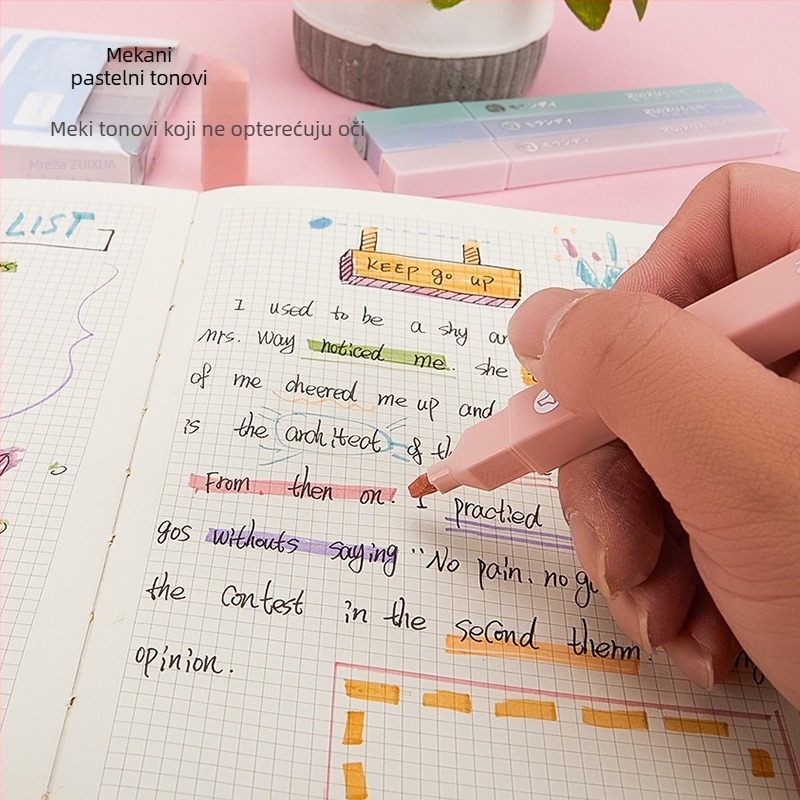 Mekani
pastelni tonovi
Meki tonovi koji ne opterećuju oči
Mreža ZUIXUA
モランディ
モランディ
モランディ
LIST
KEEP go up
I used to be a shy
Mrs. Way noticed me. she
of me cheered me up and
is the architeot of
From then on. I practied
gos withouts saying "No pain. no
the contest in the second therm.
opinion.